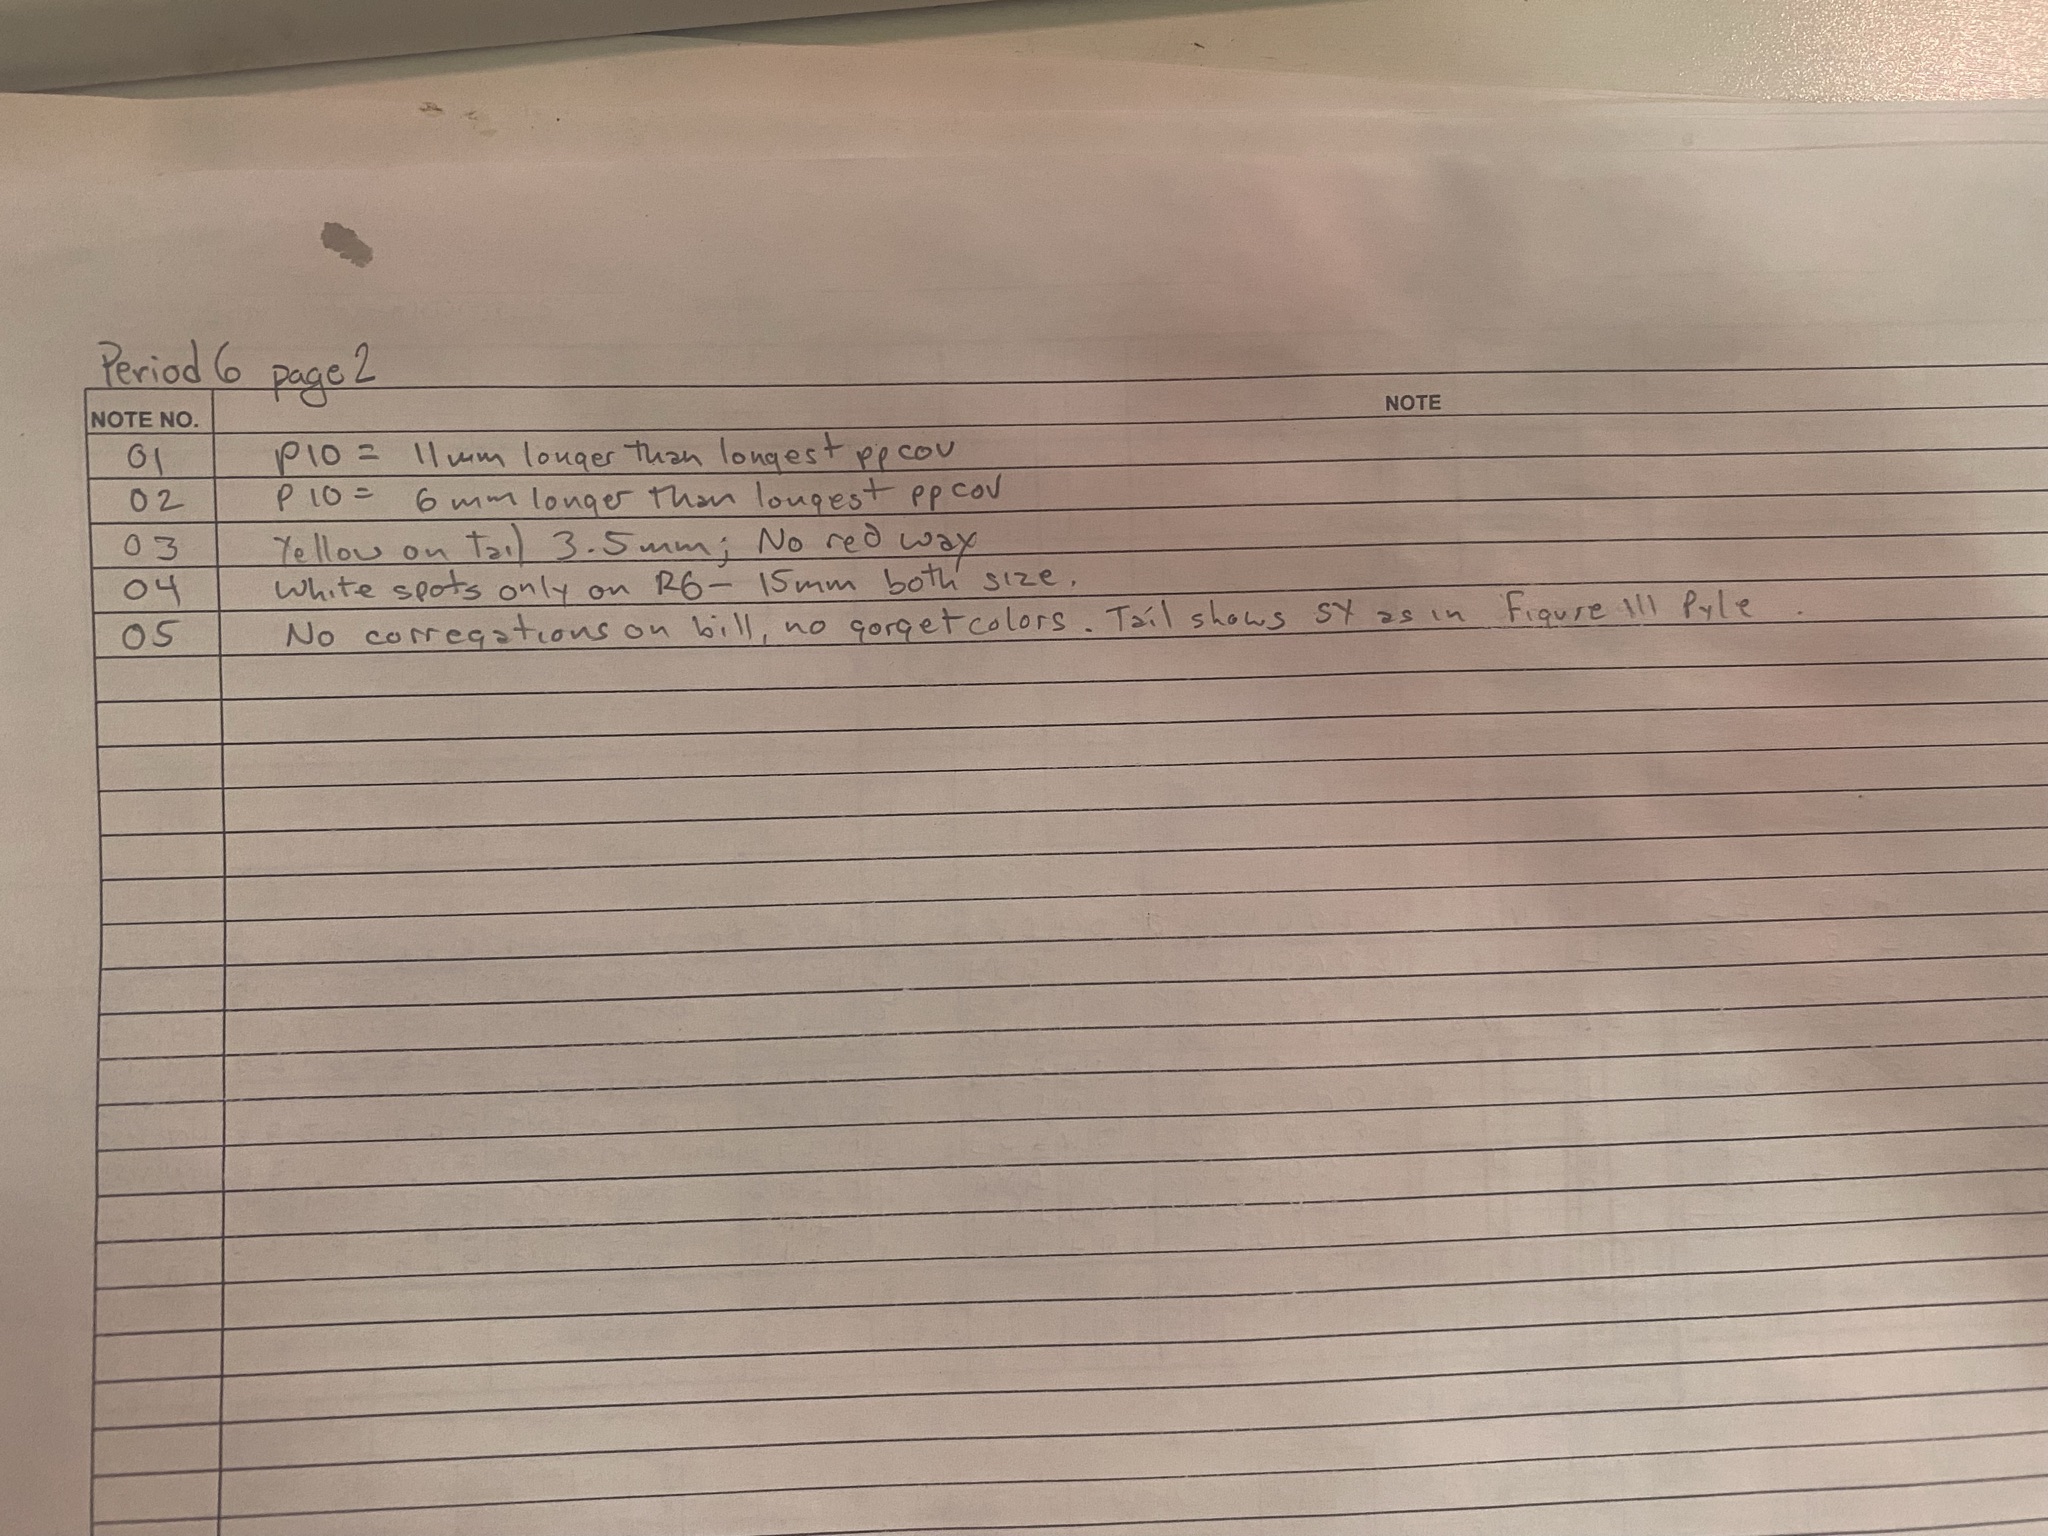 Period 6 page 2
NOTE NO. NOTE
01 P10 = 11mm longer than longest pp cov
02 P10 = 6 mm longer than longest pp cov
03 Yellow on tail 3.5mm; No red wax
04 White spots only on R6 - 15mm both size.
05 No corregations on bill, no gorget colors. Tail shows SY as in Figure 111 Pyle.